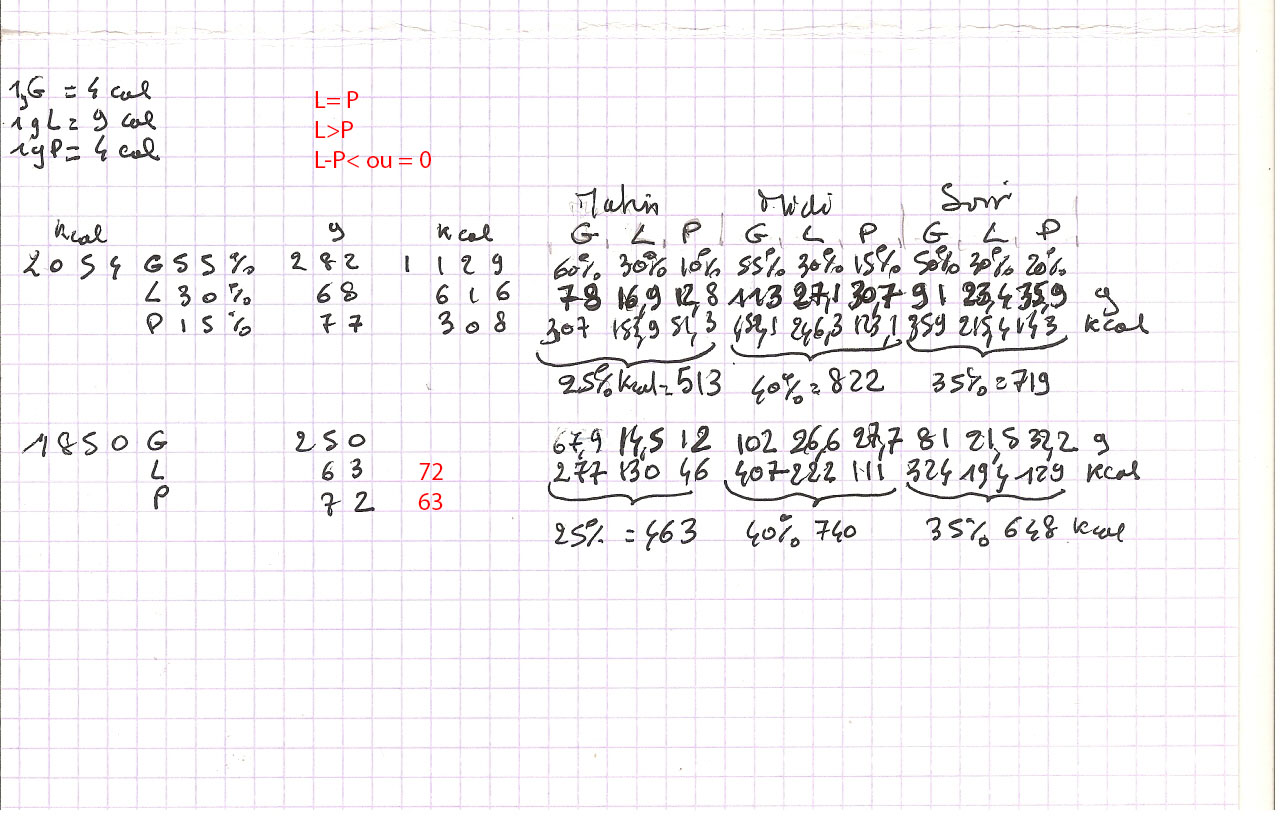 1gG = 4 cal
1gL = 9 cal
1gP = 4 cal
L= P
L>P
L-P< ou = 0
Matin Midi Soir
Kcal g kcal G L P G L P G L P
2054 G 55% 282 1129 60% 30% 10% 55% 30% 15% 50% 30% 20%
L 30% 68 616 78 16,9 12,8 113 27,1 30,7 91 23,4 35,9 g
P 15% 77 308 307 153,9 51,3 452,1 246,3 123,1 359 215,4 143 kcal
25% kcal = 513 40% = 822 35% = 719
1850 G 250 67,9 14,5 12 102 26,6 27,7 81 21,5 32,2 g
L 63 72 277 130 46 407 222 111 324 194 129 kcal
P 72 63
25% = 463 40% 740 35% 648 kcal